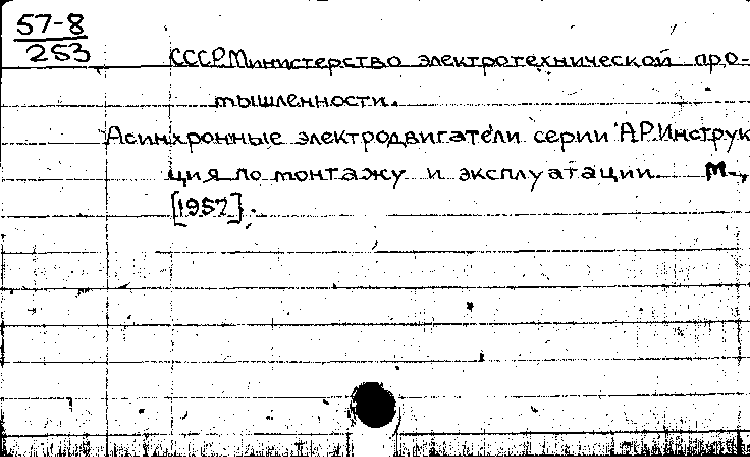 57-8
253
СССР. Министерство электротехнической про-
мышленности.
Асинхронные электродвигатели серии АР. Инструк
ция по монтажу и эксплуатации. М.,
[1957].